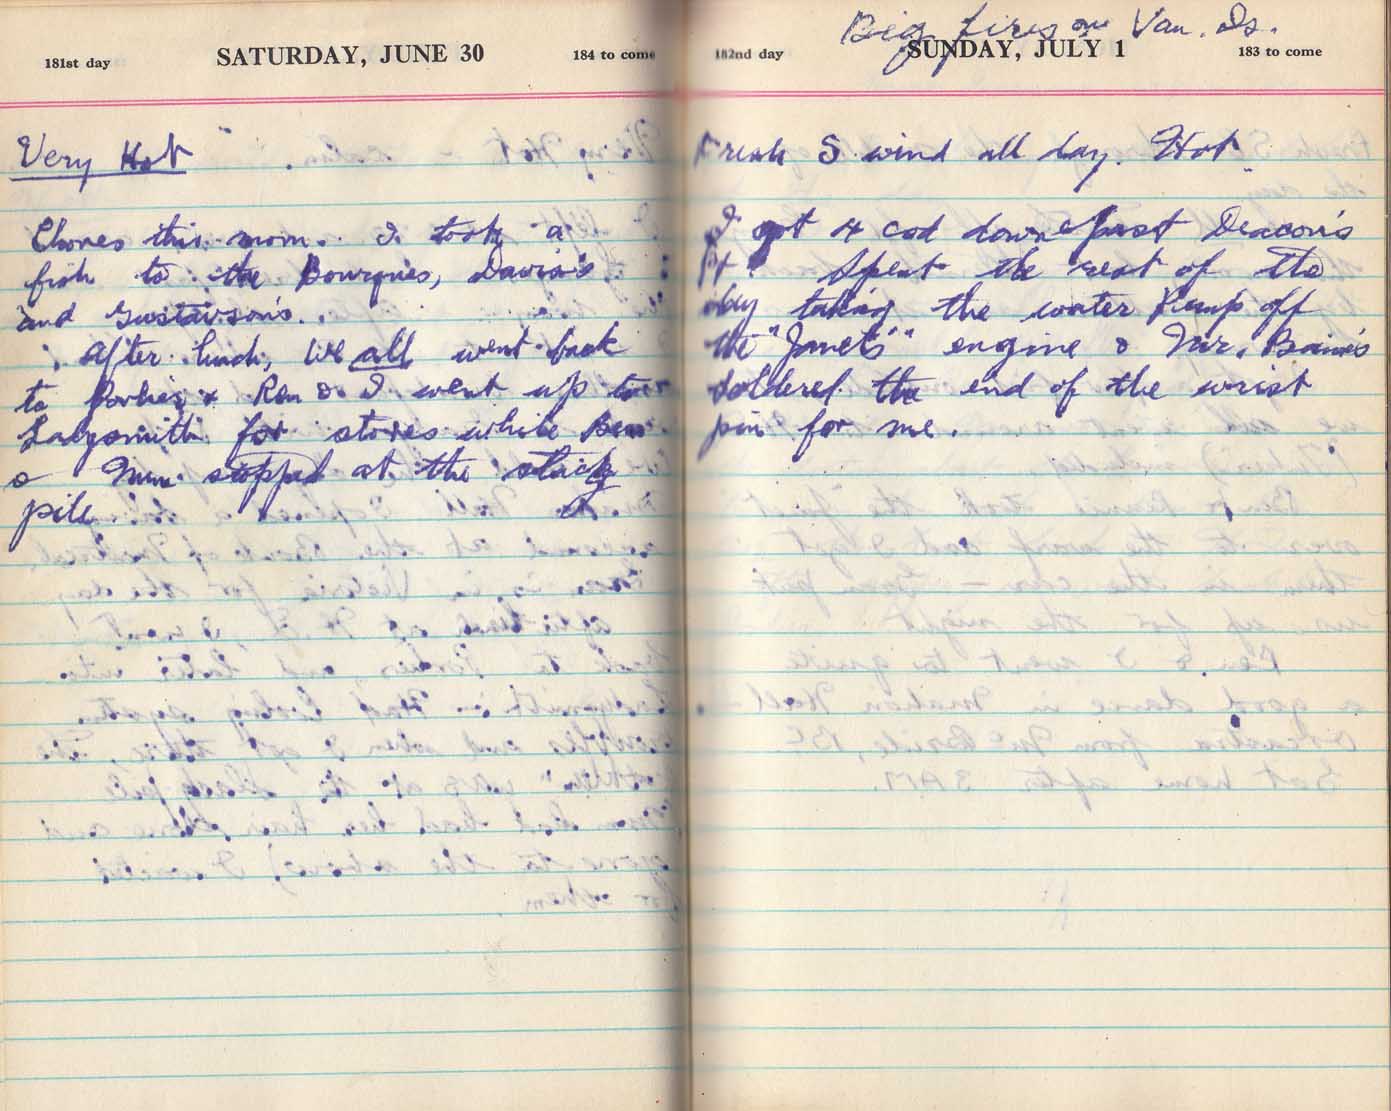 181st day SATURDAY, JUNE 30 184 to come
Very Hot
Chores this morn. I took a
fish to the Bourques, Davis's
and Gustavson's.
After lunch, we all went back
to & Ron & I went up to
Ladysmith for stores while Ben
& Mum stopped at the slack
pile
Big fires on Van. Is.
182nd day SUNDAY, JULY 1 183 to come
Fresh S wind all day. Hot
I got 4 cod down past Deacon's
Pt. Spent the rest of the
day taking the water pump off
the "Janet's" engine & Mr. Baines
soldered the end of the wrist
pin for me.